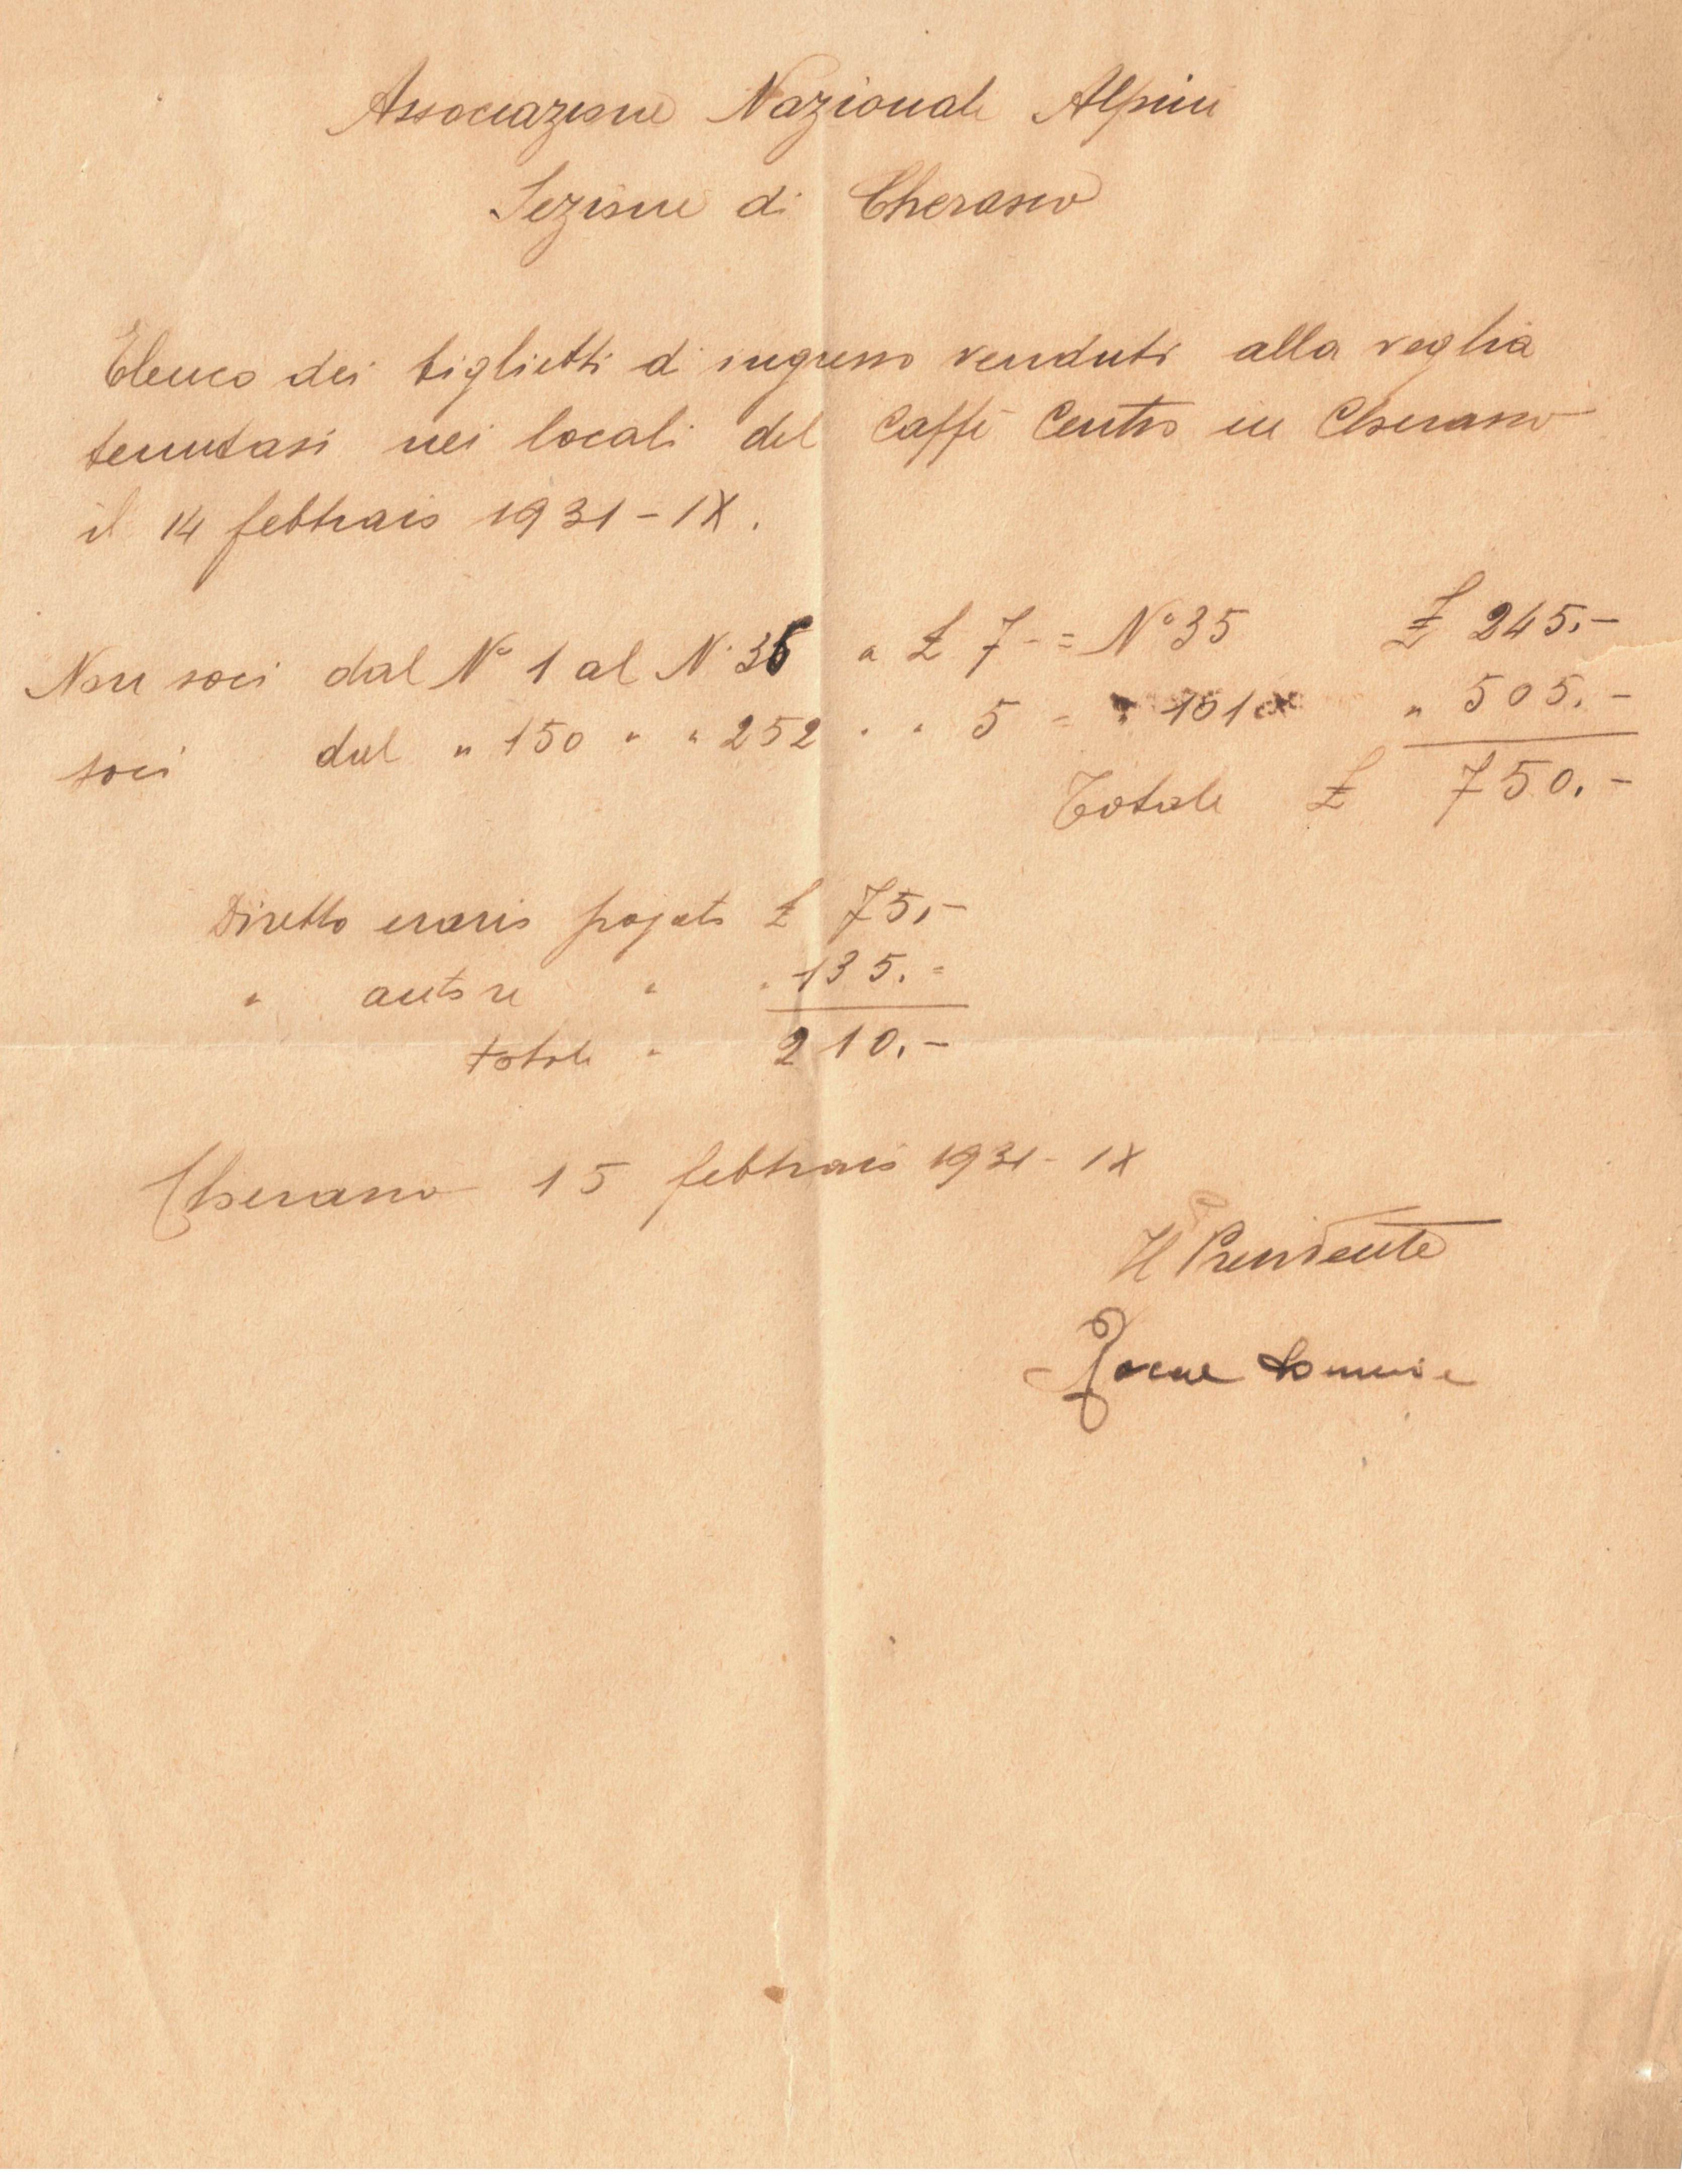 Associazione Nazionale Alpini
Sezione di Cherasco
Elenco dei biglietti di ingresso venduti alla veglia
tenutasi nei locali del Caffè Centro in Cherasco
il 14 febbraio 1931 - IX.
Non soci dal N° 1 al N. 36 a £ 7 - = N° 35 £ 245.-
soci dal " 150 " " 252 " " 5 = " 101 " 505.-
Totale £ 750.-
Diretto erario pagato £ 75,-
" autore " " 135.=
totale " 210.-
Cherasco 15 febbraio 1931 - IX
Il Presidente